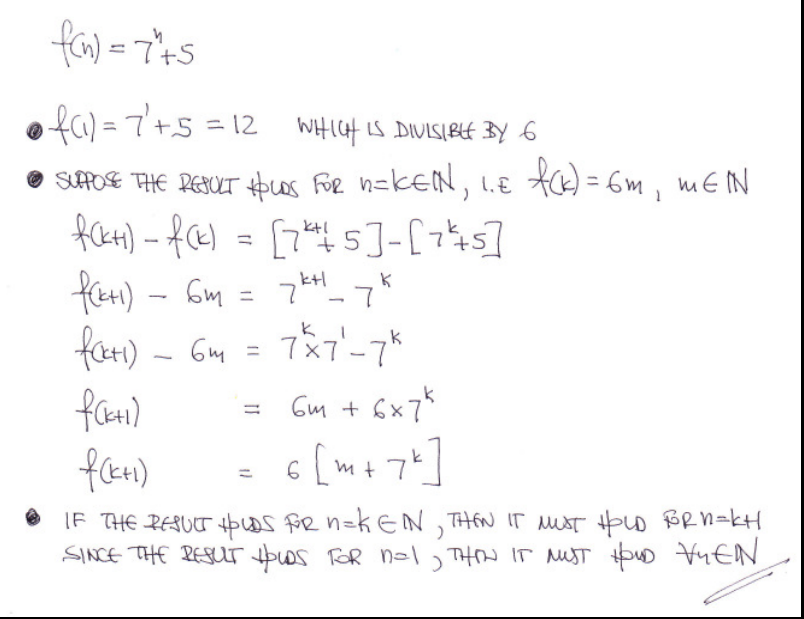 f(n) = 7ⁿ+5
• f(1) = 7¹+5 = 12 WHICH IS DIVISIBLE BY 6
• SUPPOSE THE RESULT HOLDS FOR n=k∈ℕ, I.E f(k) = 6m, m∈ℕ
f(k+1) − f(k) = [7ᵏ⁺¹+5]−[7ᵏ+5]
f(k+1) − 6m = 7ᵏ⁺¹−7ᵏ
f(k+1) − 6m = 7ᵏ×7¹−7ᵏ
f(k+1) = 6m + 6×7ᵏ
f(k+1) = 6[m+7ᵏ]
• IF THE RESULT HOLDS FOR n=k∈ℕ, THEN IT MUST HOLD FOR n=k+1
SINCE THE RESULT HOLDS FOR n=1, THEN IT MUST HOLD ∀n∈ℕ